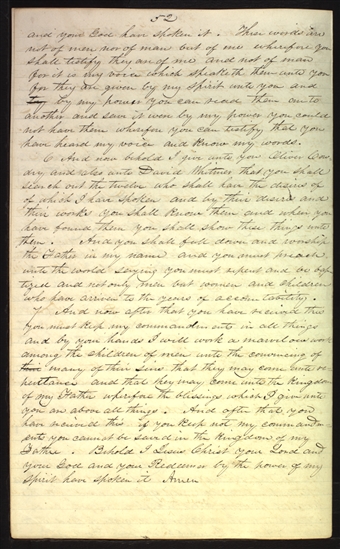 52
and your God have spoken it. These words are
not of men nor of man but of me wherefore you
shall testify they are of me and not of man
for it is my voice which speaketh them unto you
for they are given by my spirit unto you and
by my power you can read them one to
another and save it were by my power you could
not have them wherefore you can testify that you
have heard my voice and know my words.
6 And now behold I give unto you Oliver Cow-
dry and also unto David Whitmer that you shall
search out the twelve who shall have the desires of
of which I have spoken and by their desires and
their works you shall know them and when you
have found them you shall show these things unto
them. And you shall fall down and worship
the Father in my name and you must preach
unto the world saying you must repent and be bap
tized and not only men but women and children
who have arriven to the years of accountability.
7 And now after that you have received this
you must keep my commandments in all things
and by your hands I will work a marvelous work
among the children of men unto the convincing of
many of their sins that they may come unto re
pentance and that they may come unto the Kingdom
of my Father wherefore the blessings which I give unto
you are above all things. And after that you
have received this if you keep not my command
ments you cannot be saved in the Kingdom of my
Father. Behold I Jesus Christ your Lord and
your God and your Redeemer by the power of my
Spirit have spoken it Amen